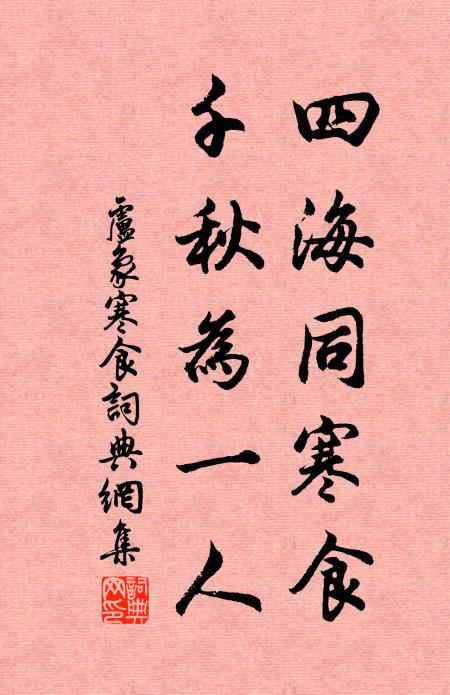 四海同寒食
千秋為一人
盧象寒食詞典網集
詞典網印